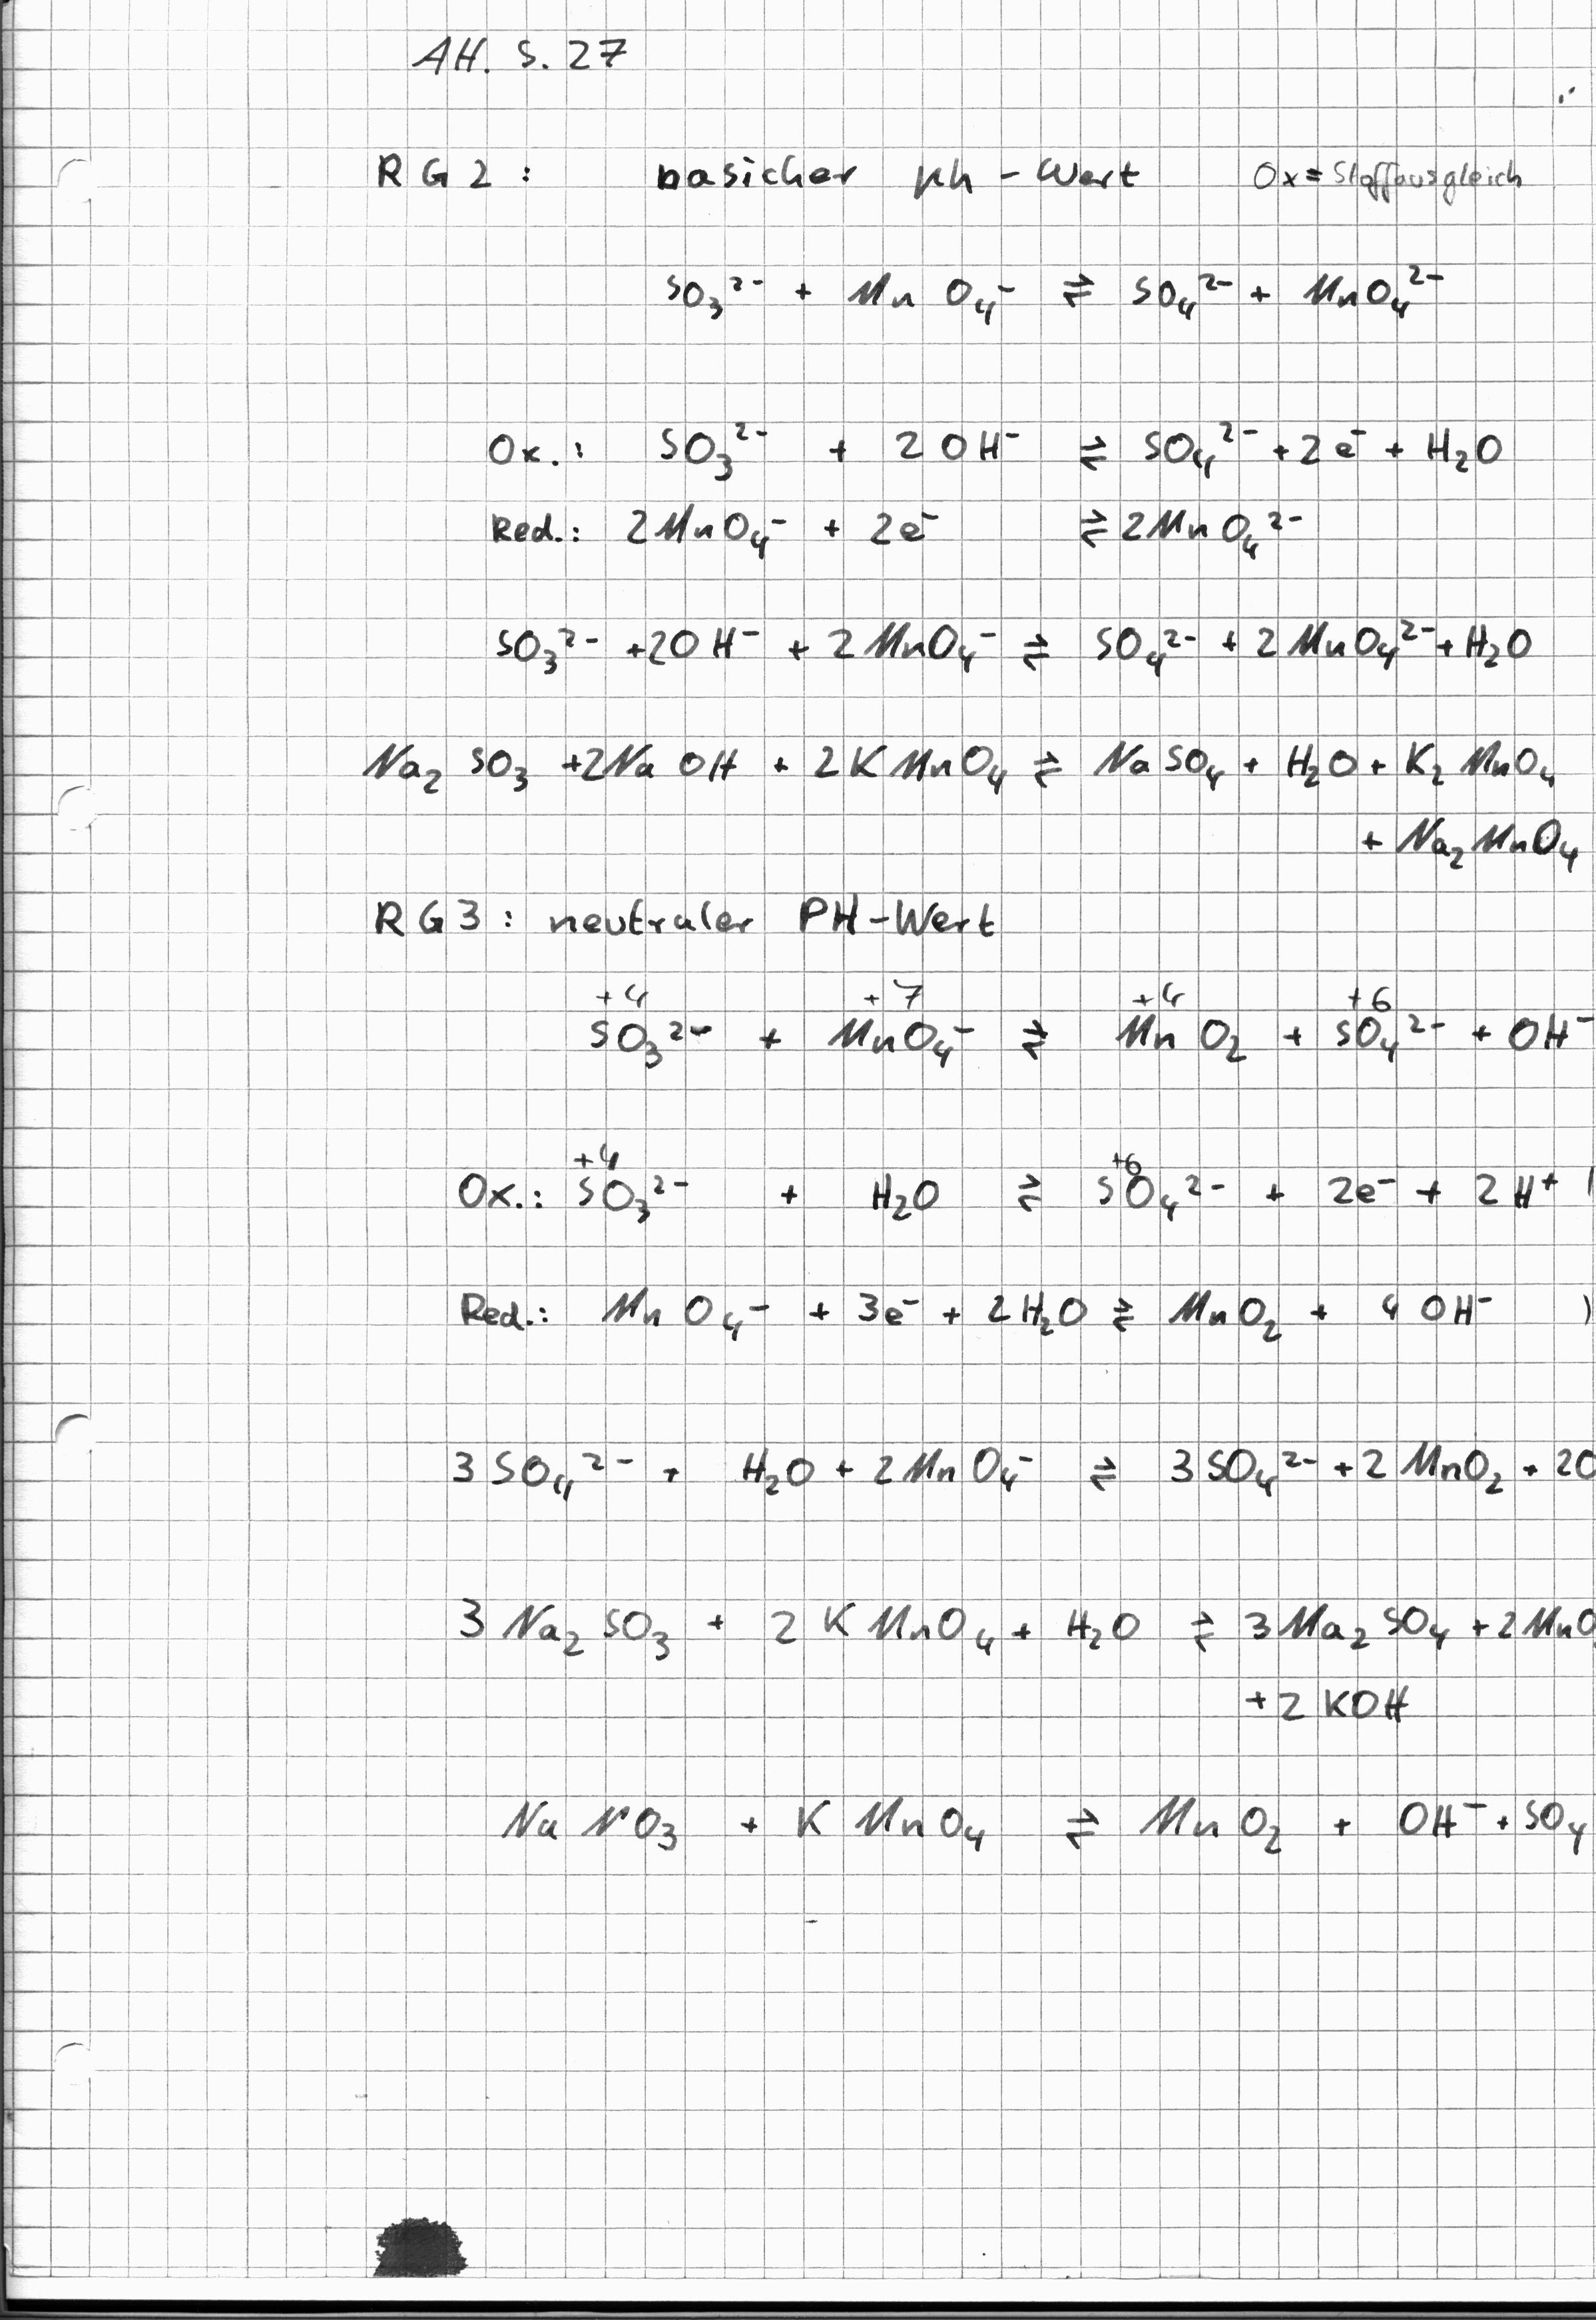 AH. S. 27
RG2: basicher ph-Wert Ox = Stoffausgleich
SO₃²⁻ + MnO₄⁻ ⇌ SO₄²⁻ + MnO₄²⁻
Ox.: SO₃²⁻ + 2OH⁻ ⇌ SO₄²⁻ + 2e⁻ + H₂O
Red.: 2MnO₄⁻ + 2e⁻ ⇌ 2MnO₄²⁻
SO₃²⁻ + 2OH⁻ + 2MnO₄⁻ ⇌ SO₄²⁻ + 2MnO₄²⁻ + H₂O
Na₂SO₃ + 2NaOH + 2KMnO₄ ⇌ NaSO₄ + H₂O + K₂MnO₄
+ Na₂MnO₄
RG3: neutraler PH-Wert
+4 +7 +4 +6
SO₃²⁻ + MnO₄⁻ ⇌ MnO₂ + SO₄²⁻ + OH⁻
+4 +6
Ox.: SO₃²⁻ + H₂O ⇌ SO₄²⁻ + 2e⁻ + 2H⁺ |
Red.: MnO₄⁻ + 3e⁻ + 2H₂O ⇌ MnO₂ + 4OH⁻ )
3SO₄²⁻ + H₂O + 2MnO₄⁻ ⇌ 3SO₄²⁻ + 2MnO₂ + 2O
3Na₂SO₃ + 2KMnO₄ + H₂O ⇌ 3Ma₂SO₄ + 2MnO
+ 2KOH
NaNO₃ + KMnO₄ ⇌ MnO₂ + OH⁻ + SO₄